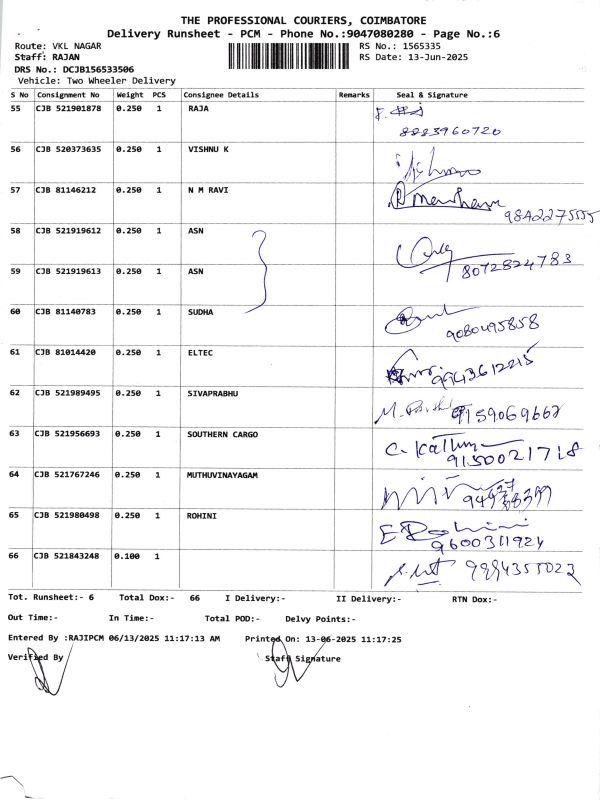 THE PROFESSIONAL COURIERS, COIMBATORE
Delivery Runsheet - PCM - Phone No.:9047080280 - Page No.:6
Route: VKL NAGAR RS No.: 1565335
Staff: RAJAN RS Date: 13-Jun-2025
DRS No.: DCJB156533506
Vehicle: Two Wheeler Delivery
S No Consignment No Weight PCS Consignee Details Remarks Seal & Signature
55 CJB 521901878 0.250 1 RAJA
8883960720
56 CJB 520373635 0.250 1 VISHNU K
57 CJB 81146212 0.250 1 N M RAVI
9842275555
58 CJB 521919612 0.250 1 ASN
8072824783
59 CJB 521919613 0.250 1 ASN
60 CJB 81140783 0.250 1 SUDHA
9080495858
61 CJB 81014420 0.250 1 ELTEC
9943612215
62 CJB 521989495 0.250 1 SIVAPRABHU
9159069662
63 CJB 521956693 0.250 1 SOUTHERN CARGO
9150021718
64 CJB 521767246 0.250 1 MUTHUVINAYAGAM
65 CJB 521980498 0.250 1 ROHINI
E Rohini
9600311924
66 CJB 521843248 0.100 1 9994355023
Tot. Runsheet:- 6 Total Dox:- 66 I Delivery:- II Delivery:- RTN Dox:-
Out Time:- In Time:- Total POD:- Delvy Points:-
Entered By :RAJIPCM 06/13/2025 11:17:13 AM Printed On: 13-06-2025 11:17:25
Verified By Staff Signature